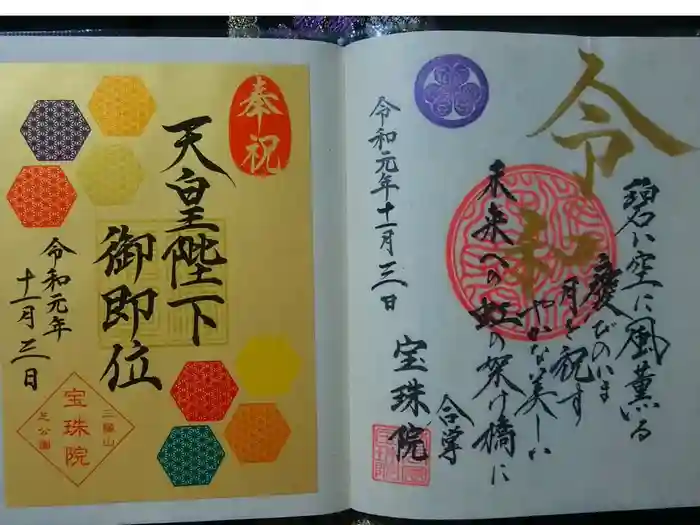 令和
碧い空に風薫る
慶びのいま
月を祝す
やかな美しい
未来への虹の架け橋に
合掌
令和元年十一月三日
宝珠院
奉祝
天皇陛下
御即位
令和元年
十一月三日
三縁山
宝珠院
芝公園